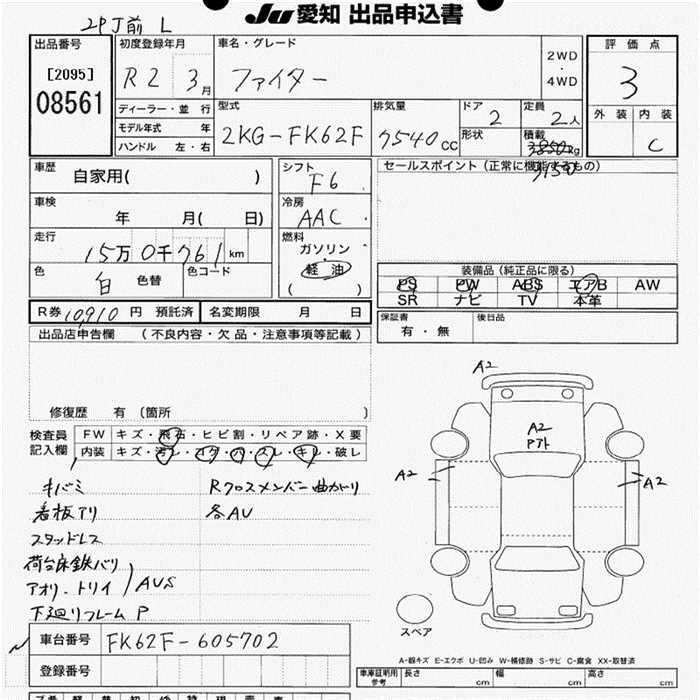 2PJ前 L
JU 愛知 出品申込書
出品番号
[2095]
08561
初度登録年月
R2 3月
車名・グレード
ファイター
2WD
・
4WD
評価点
3
外装 内装
C
ディーラー・並行
モデル年式 年
ハンドル 左・右
型式
2KG-FK62F
排気量
7540cc
ドア
2
形状
定員
2人
積載
3850kg
3150
車歴
自家用( )
シフト
F6
セールスポイント(正常に機能するもの)
車検
年 月( 日)
冷房
AAC
走行
15万0千761km
燃料
ガソリン・
軽油
( )
色
白 色替
色コード
装備品(純正品に限る)
PS PW ABS エアB AW
SR ナビ TV 本革
R券 10,910 円 預託済
名変期限 月 日
保証書
有・無
後日品
出品店申告欄 (不良内容・欠品・注意事項等記載)
修復歴 有 (箇所 )
検査員
記入欄
FW キズ・飛石・ヒビ割・リペア跡・X要
内装 キズ・汚レ・コゲ・穴・スレ・キレ・破レ
キバミ
看板アリ
スタッドレス
荷台床鉄バリ
アオリ・トリイ
AUS
下廻りフレーム P
Rクロスメンバー曲がり
各AU
A2
A2
A2
A2
スペア
車台番号
FK62F-605702
登録番号
A-線キズ E-エクボ U-凹み W-補修跡 S-サビ C-腐食 XX-取替済
車庫証明用
参考
長さ cm
幅 cm
高さ cm